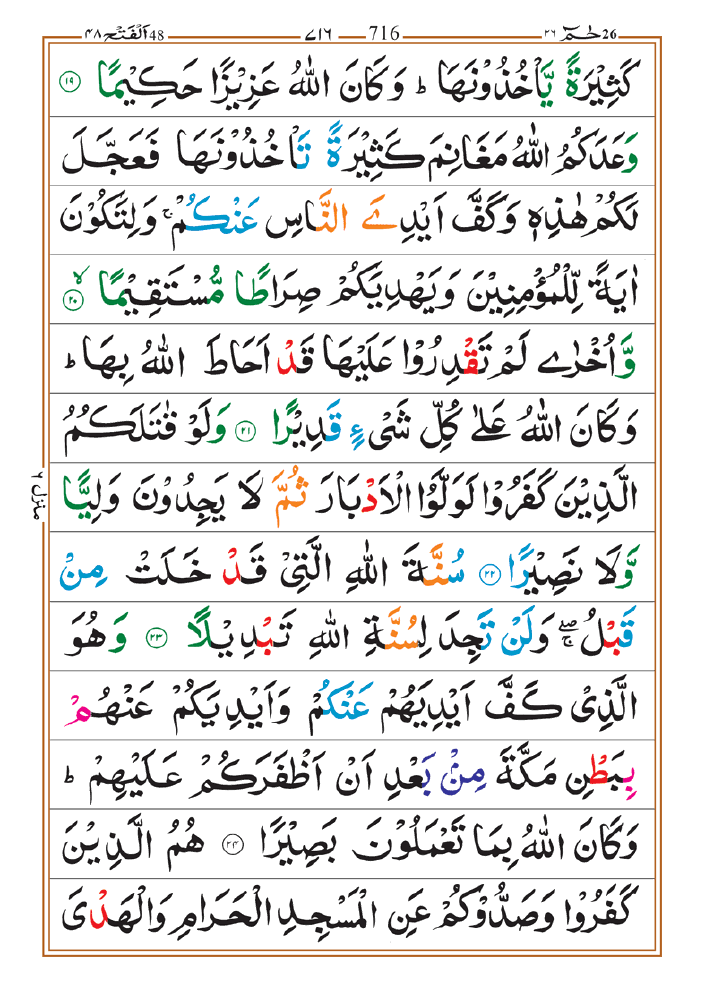 حٰمٓ 26 ٢٦ 716 ٧١٦ اَلْفَتْح 48 ٤٨
كَثِيْرَةً يَّاْخُذُوْنَهَا ؕ وَكَانَ اللّٰهُ عَزِيْزًا حَكِيْمًا ۝١٩
وَعَدَكُمُ اللّٰهُ مَغَانِمَ كَثِيْرَةً تَاْخُذُوْنَهَا فَعَجَّلَ
لَكُمْ هٰذِهٖ وَكَفَّ اَيْدِىَ النَّاسِ عَنْكُمْ ۚ وَلِتَكُوْنَ
اٰيَةً لِّلْمُؤْمِنِيْنَ وَيَهْدِيَكُمْ صِرَاطًا مُّسْتَقِيْمًا ۙ ۝٢٠
وَّاُخْرٰى لَمْ تَقْدِرُوْا عَلَيْهَا قَدْ اَحَاطَ اللّٰهُ بِهَا ؕ
وَكَانَ اللّٰهُ عَلٰى كُلِّ شَىْءٍ قَدِيْرًا ۝٢١ وَلَوْ قٰتَلَكُمُ
الَّذِيْنَ كَفَرُوْا لَوَلَّوُا الْاَدْبَارَ ثُمَّ لَا يَجِدُوْنَ وَلِيًّا
وَّلَا نَصِيْرًا ۝٢٢ سُنَّةَ اللّٰهِ الَّتِىْ قَدْ خَلَتْ مِنْ
قَبْلُ ۖۚ وَلَنْ تَجِدَ لِسُنَّةِ اللّٰهِ تَبْدِيْلًا ۝٢٣ وَهُوَ
الَّذِىْ كَفَّ اَيْدِيَهُمْ عَنْكُمْ وَاَيْدِيَكُمْ عَنْهُمْ
بِبَطْنِ مَكَّةَ مِنْۢ بَعْدِ اَنْ اَظْفَرَكُمْ عَلَيْهِمْ ؕ
وَكَانَ اللّٰهُ بِمَا تَعْمَلُوْنَ بَصِيْرًا ۝٢٤ هُمُ الَّذِيْنَ
كَفَرُوْا وَصَدُّوْكُمْ عَنِ الْمَسْجِدِ الْحَرَامِ وَالْهَدْىَ
منزل ٦